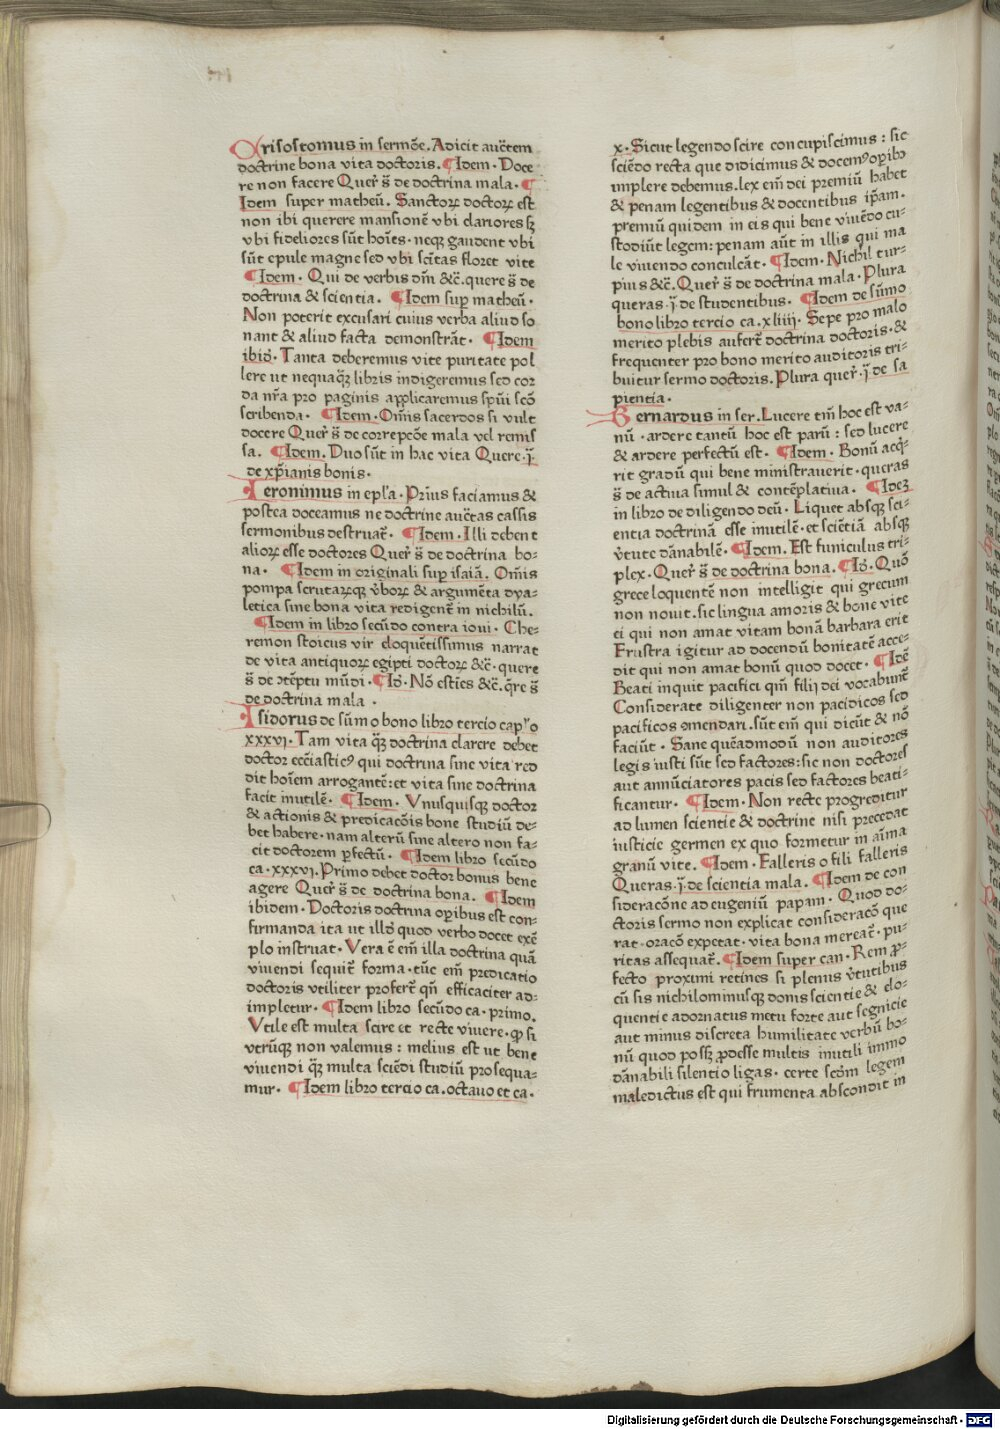 Crisostomus in sermõe. Adicit auc̃tem
doctrine bona vita doctoris. ¶Idem. Doce
re non facere Quer̃ s̃ de doctrina mala. ¶
Idem super matheũ. Sanctoꝝ doctoꝝ est
non ibi querere mansionẽ vbi clariores sꝫ
vbi fideliores sũt hoĩes. neqꝫ gaudent vbi
sũt epule magne sed vbi sc̃itas floret vite
¶Idem. Qui de verbis dñi &c̃. quere s̃ de
doctrina & scientia. ¶Idem suꝑ matheũ.
Non poterit excusari cuius verba aliud so
nant & aliud facta demonstrãt. ¶Idem
ibid̃. Tanta deberemus vite puritate pol
lere ut nequaqꝫ libris indigeremus sed cor
da nr̃a pro paginis applicaremus sṗui sc̃o
scribenda. ¶Idem. Om̃is sacerdos si vult
docere Quer̃ s̃ de correpc̃oe mala vel remis
sa. ¶Idem. Duo sũt in hac vita Quere. j̃.
de xp̃ianis bonis.
Ieronimus in epl̃a. Prĩus faciamus &
postea doceamus ne doctrine auc̃tas cassis
sermonibus destruat̃. ¶Idem. Illi debent
alioꝝ esse doctores Quer̃ s̃ de doctrina bo-
na. ¶Idem in originali suꝑ isaiã. Om̃is
pompa scrutaꝝqꝫ ṽboꝝ & argumẽta dya-
letica sine bona vita redigent̃ in nichilũ.
¶Idem in libro secũdo contra ioui. Che-
remon stoicus vir eloquẽtissimus narrat
de vita antiquoꝝ egipti doctoꝝ &c̃. quere
s̃ de ↄtẽptu mũdi. ¶Id̃. Nõ estics &c̃. q̃re s̃
de doctrina mala.
Isidorus de sũmo bono libro tercio capl̃o
xxxvi. Tam vita qꝫ doctrina clarere debet
doctor eccl̃iasticꝰ qui doctrina sine vita red
dit hoĩem arrogantẽ: et vita sine doctrina
facit inutilẽ. ¶Idem. Vnusquisqꝫ doctor
& actionis & predicac̃ois bone studiũ de-
bet habere. nam alterũ sine altero non fa-
cit doctorem ꝑfectũ. ¶Idem libro secũdo
ca. xxxvi. Primo debet doctor bonus bene
agere Quer̃ s̃ de doctrina bona. ¶Idem
ibidem. Doctoris doctrina oꝑibus est con-
firmanda ita ut illd̃ quod verbo docet exẽ
plo instruat. Vera ẽ em̃ illa doctrina quã
viuendi sequit̃ forma. tũc em̃ predicatio
doctoris vtiliter profert̃ qñ efficaciter ad-
impletur. ¶Idem libro secũdo ca. primo.
Vtile est multa scire et recte viuere. ꝙ si
vtrũqꝫ non valemus: melius est ut bene
viuendi qꝫ multa sciẽdi studiũ prosequa-
mur. ¶Idem libro tercio ca. octauo et ca.
x. Sicut legendo scire concupiscimus: sic
sciẽdo recta que didicimus & docemꝰ oꝑibꝫ
implere debemus. lex em̃ dei premiũ habet
& penam legentibus & docentibus ip̃am.
premiũ quidem in eis qui bene viuẽdo cu-
stodiũt legem: penam aũt in illis qui ma
le viuendo conculcãt. ¶Idem. Nichil tur-
pius &c̃. Quer̃ s̃ de doctrina mala. Plura
queras. j̃ de studentibus. ¶Idem de sũmo
bono libro tercio ca. xliiij. Sepe pro malo
merito plebis aufert̃ doctrina doctoris. &
frequenter pro bono merito auditoris tri-
buitur sermo doctoris. Plura quer̃. j̃ de sa
pientia.
Bernardus in ser. Lucere em̃ hoc est va-
nũ. ardere tantũ hoc est parũ: sed lucere
& ardere perfectũ est. ¶Idem. Bonũ acq̃-
rit gradũ qui bene ministrauerit. queras
s̃ de actiua simul & contẽplatiua. ¶Idez
in libro de diligendo deũ. Liquet absqꝫ sci-
entia doctrinã esse inutilẽ. et sciẽtiã absqꝫ
ṽtute dãnabilẽ. ¶Idem. Est funiculus tri-
plex. Quer̃ s̃ de doctrina bona. ¶Id̃. Quõ
grece loquentẽ non intelligit qui grecum
non nouit. sic lingua amoris & bone vite
ei qui non amat vitam bonã barbara erit
Frustra igitur ad docendũ bonitatẽ acce-
dit qui non amat bonũ quod docet. ¶Idẽ
Beati inquit pacifici qm̃ filij dei vocabunt̃
Considerate diligenter non pacidicos sed
pacificos ↄmendari. sũt em̃ qui dicũt & nõ
faciũt. Sane quẽadmodũ non auditores
legis iusti sũt sed factores: sic non doctores
aut annũciatores pacis sed factores beati-
ficantur. ¶Idem. Non recte progreditur
ad lumen scientie & doctrine nisi precedat
iusticie germen ex quo formetur in aĩma
granũ vite. ¶Idem. Falleris o fili falleris
Queras. j̃. de scientia mala. ¶Idem de con
siderac̃one ad eugeniũ papam. Quod do-
ctoris sermo non explicat considerac̃o que
rat. orac̃o expetat. vita bona mereat̃. pu-
ritas assequat̃. ¶Idem super can. Rem ꝓ-
fecto proximi retines si plenus ṽtutibus
cũ sis nichilominusqꝫ donis scientie & elo-
quentie adornatus metu forte aut segnicie
aut minus discreta humilitate verbũ bo-
nũ quod possꝫ ꝓdesse multis inutili immo
dãnabili silentio ligas. certe sc̃dm legem
maledictus est qui frumenta abscondit in
Digitalisierung gefördert durch die Deutsche Forschungsgemeinschaft - DFG